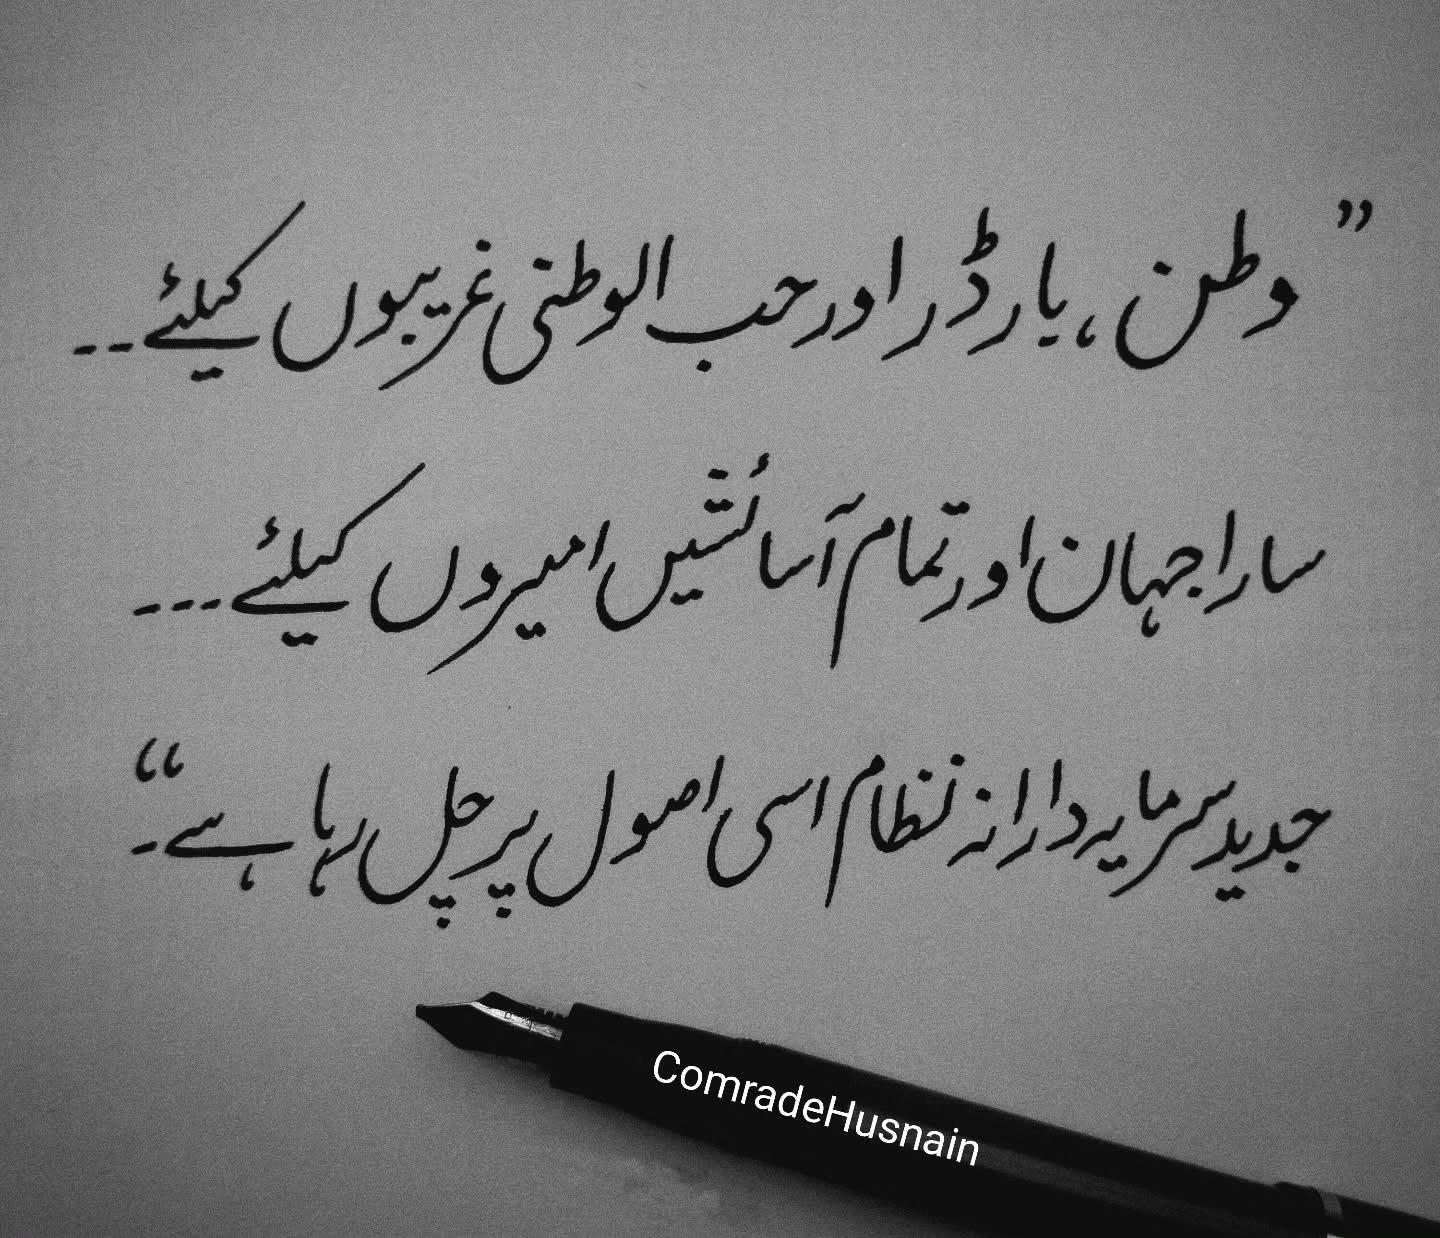 ”وطن، بارڈر اور حب الوطنی غریبوں کیلئے--
سارا جہان اور تمام آسائشیں امیروں کیلئے---
جدید سرمایہ دارانہ نظام اسی اصول پر چل رہا ہے-“
ComradeHusnain